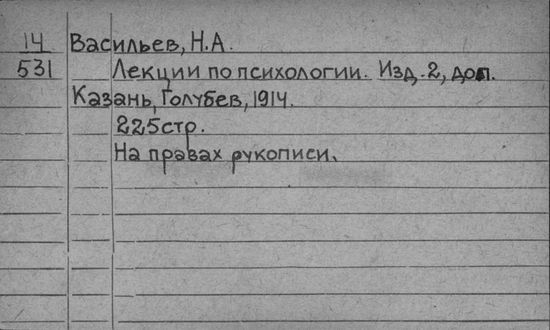 14 Васильев, Н.А.
531 Лекции по психологии. Изд. 2, доп.
Казань, Голубев, 1914.
225 стр.
На правах рукописи.